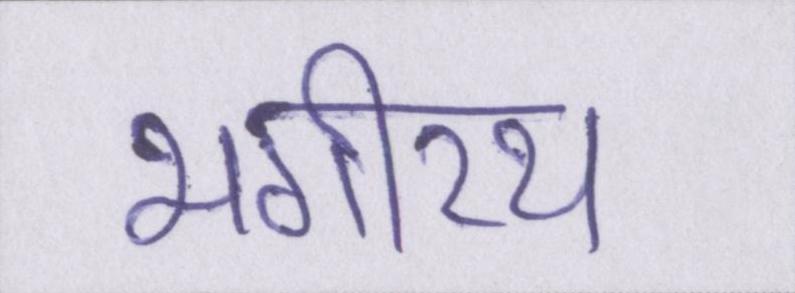 भगीरथ